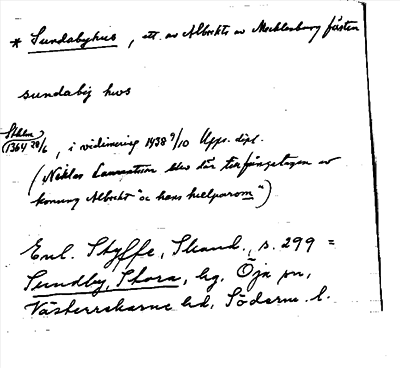 * Sundabyhus, ett av Albrekts av Mecklenburg fästen
sundabij hws
Sthlm
1364 28/6, i vidimering 1438 9/10 Upps. dipl.
(Niklas Laurentsson blev där tillfångatagen av
konung Albrekt "oc hans hielparom")
Enl. Styffe, Skand., s. 299 =
Sundby, Stora, hg, Öja sn,
Västerrekarne hd, Söderm. l.